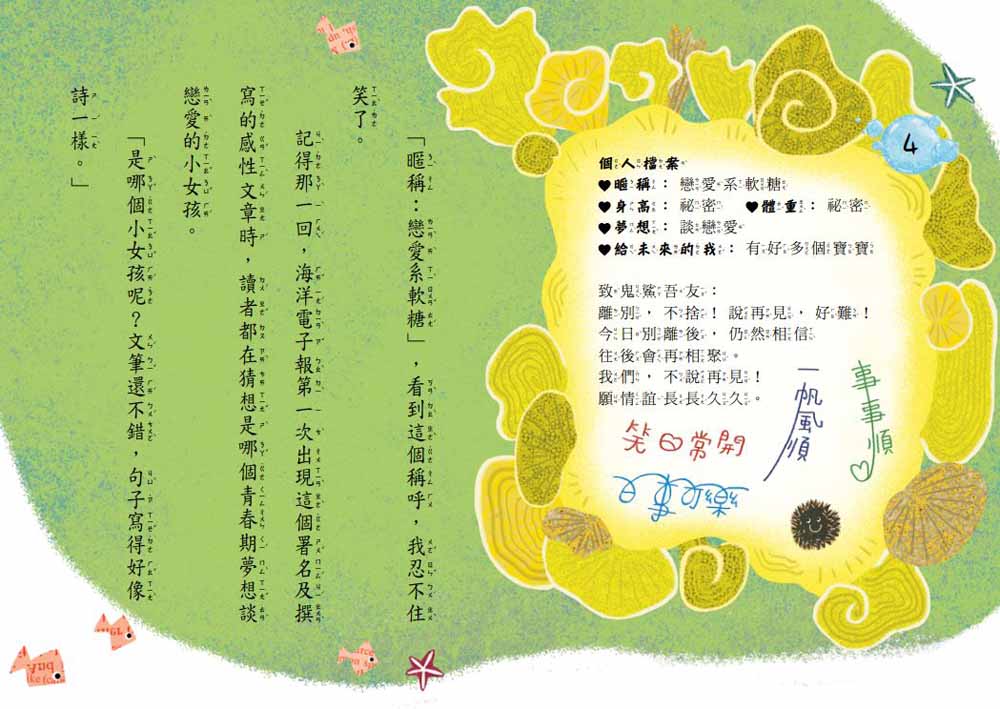 4
個人檔案
♥暱稱：戀愛系軟糖
♥身高：祕密 ♥體重：祕密
♥夢想：談戀愛
♥給未來的我：有好多個寶寶
致鬼鯊吾友：
離別，不捨！說再見，好難！
今日別離後，仍然相信
往後會再相聚。
我們，不說再見！
願情誼長長久久。
事事順
一帆風順
笑口常開
「暱稱：戀愛系軟糖」，看到這個稱呼，我忍不住
笑了。
記得那一回，海洋電子報第一次出現這個署名及撰
寫的感性文章時，讀者都在猜想是哪個青春期夢想談
戀愛的小女孩。
「是哪個小女孩呢？文筆還不錯，句子寫得好像
詩一樣。」